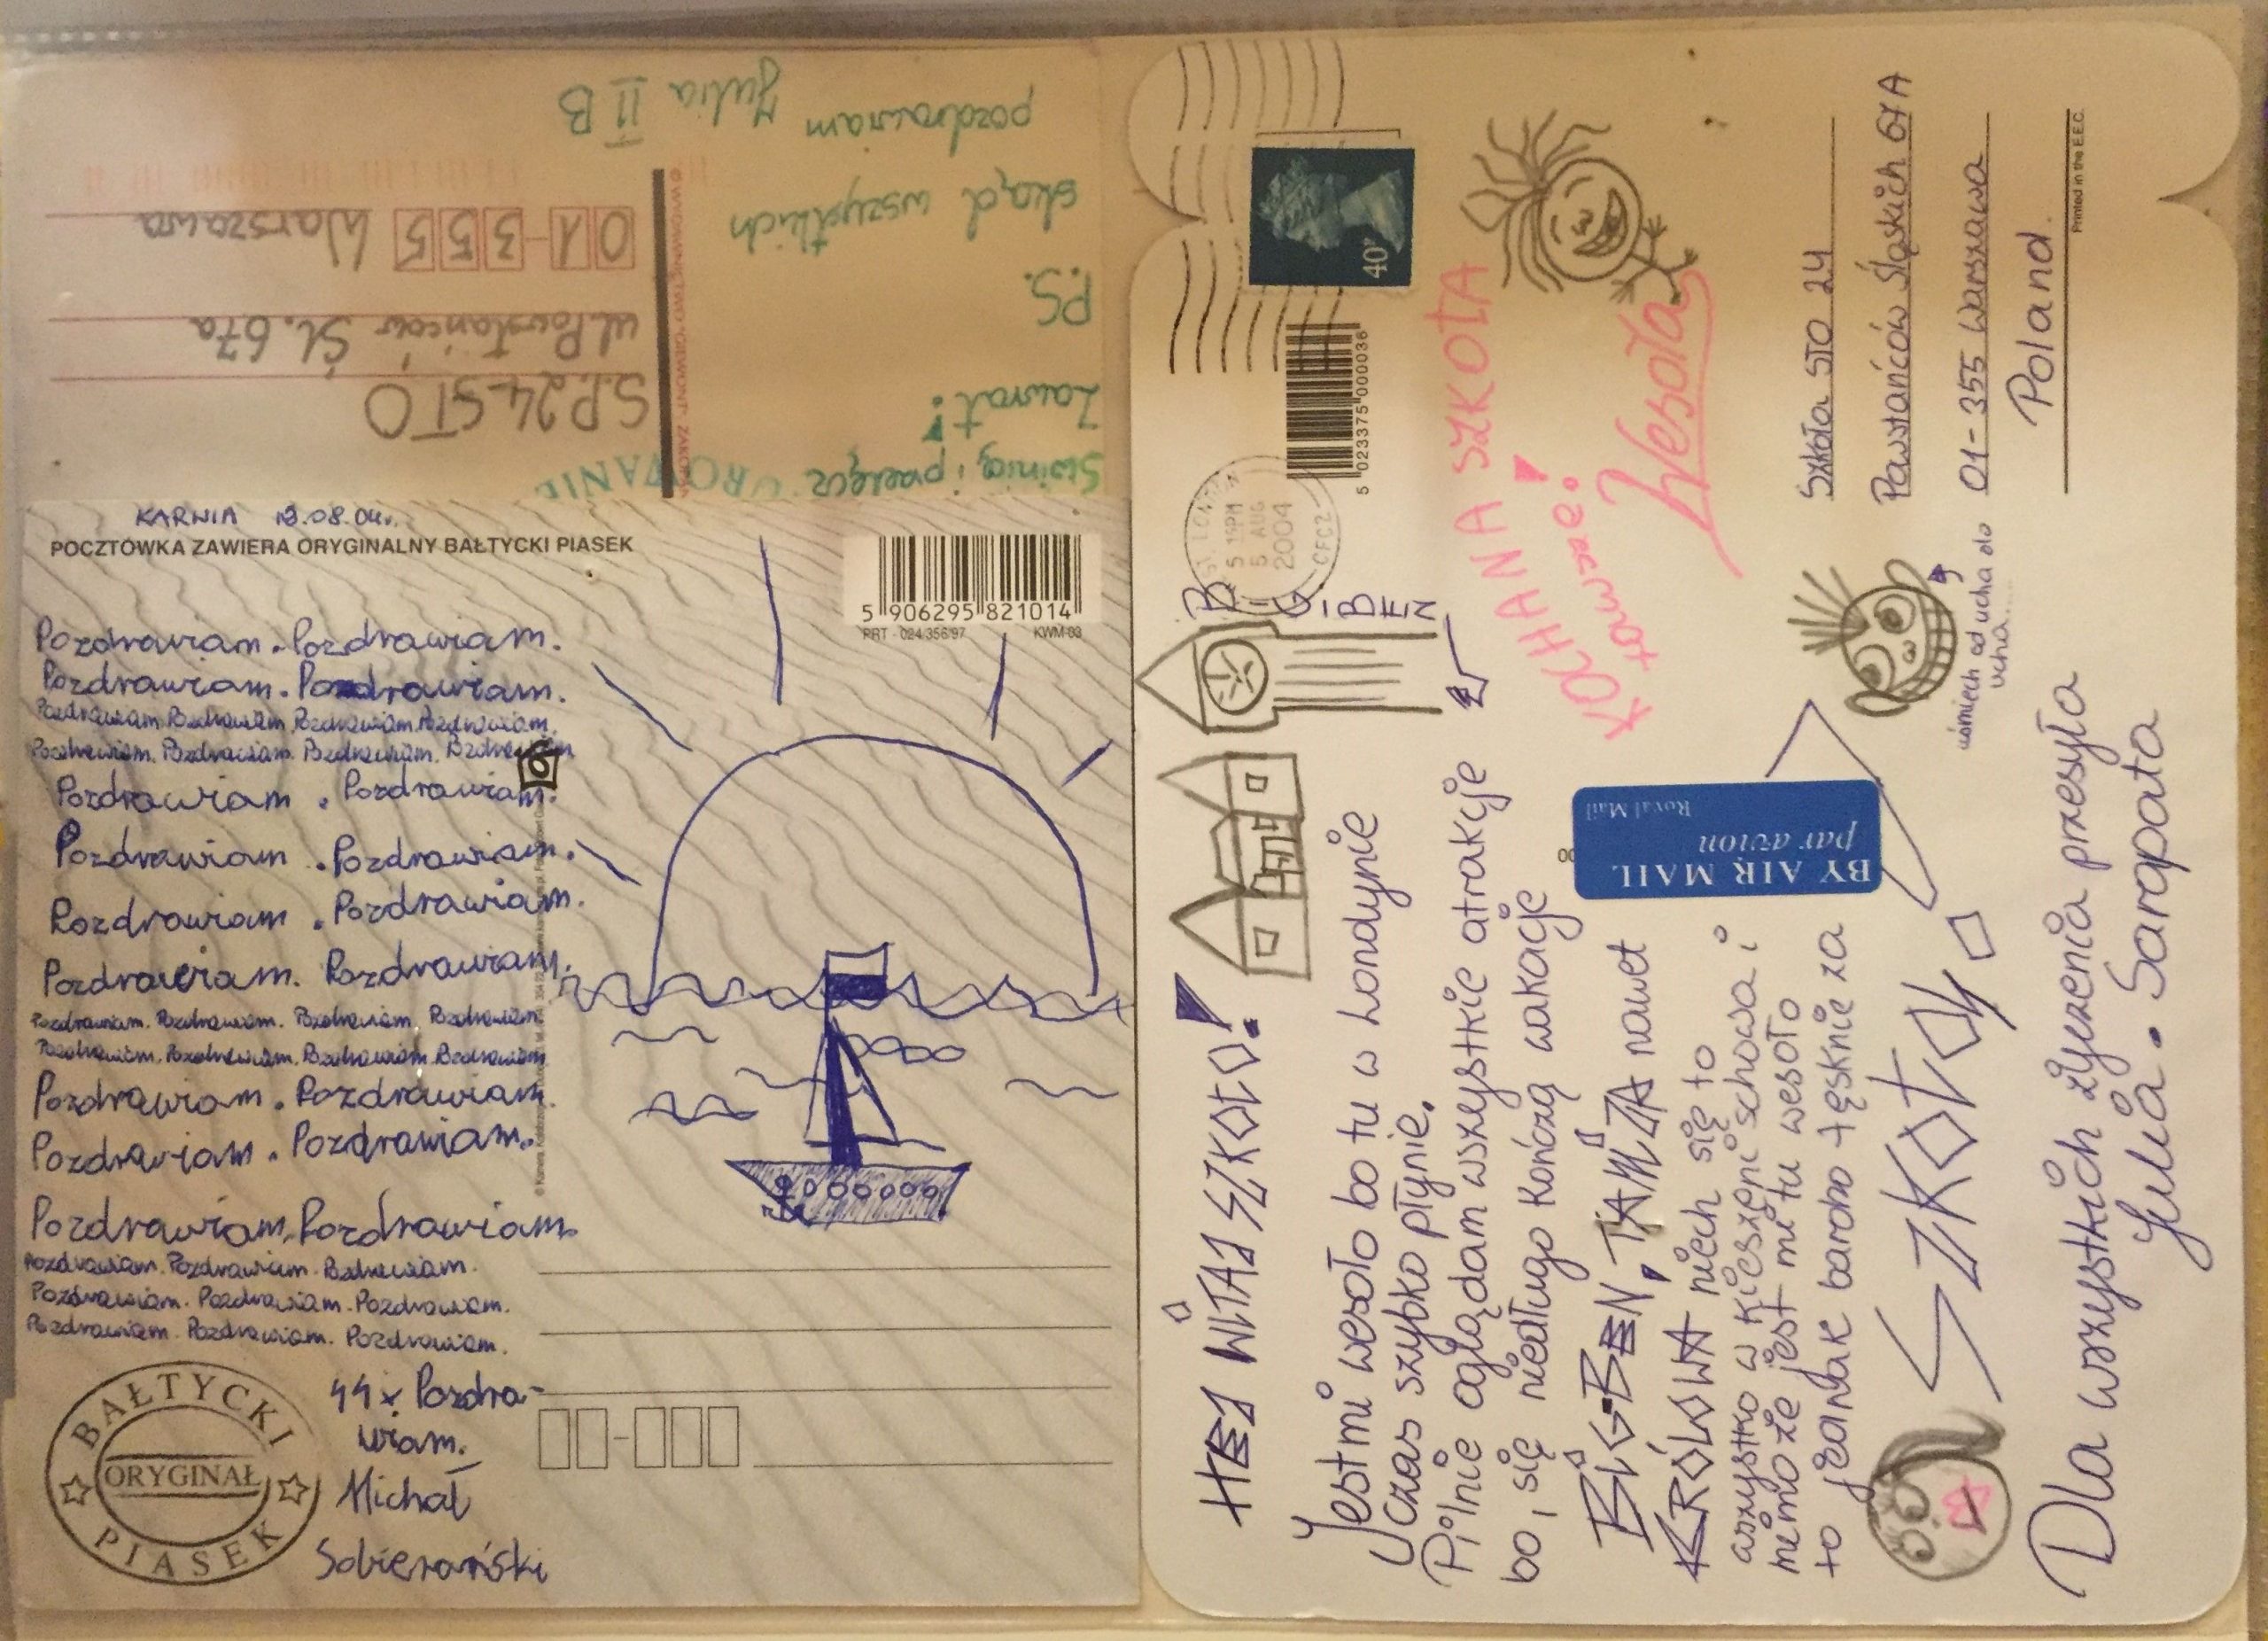 SP.24 STO
ul. Powstańców Śl. 67a
01-355 Warszawa
WYDAWNICTWO "GIEWONT" ZAKOPANE
Świnią i przełęcz
Zawrat!
P.S.
skąd wszystkich
pozdrawiam
Julia II B
KARNIA 13.08.04r.
POCZTÓWKA ZAWIERA ORYGINALNY BAŁTYCKI PIASEK
5 906295 821014
PRT - 024/356/97 KWM-03
Pozdrawiam. Pozdrawiam.
Pozdrawiam. Pozdrawiam.
Pozdrawiam. Pozdrawiam. Pozdrawiam. Pozdrawiam.
Pozdrawiam. Pozdrawiam. Pozdrawiam. Pozdrawiam
6
Pozdrawiam. Pozdrawiam.
Pozdrawiam. Pozdrawiam.
Pozdrawiam. Pozdrawiam.
Pozdrawiam. Pozdrawiam.
Pozdrawiam. Pozdrawiam. Pozdrawiam. Pozdrawiam.
Pozdrawiam. Pozdrawiam. Pozdrawiam. Pozdrawiam
Pozdrawiam. Pozdrawiam.
Pozdrawiam. Pozdrawiam.
Pozdrawiam. Pozdrawiam.
Pozdrawiam. Pozdrawiam. Pozdrawiam.
Pozdrawiam. Pozdrawiam. Pozdrawiam.
Pozdrawiam. Pozdrawiam. Pozdrawiam.
44x Pozdra-
wiam.
Michał
Sobierański
BAŁTYCKI
ORYGINAŁ
PIASEK
HEJ WITAJ SZKOŁO!
BIG BEN
Jest mi wesoło bo tu w Londynie
Czas szybko płynie.
Pilnie oglądam wszystkie atrakcje
bo, się niedługo kończą wakacje
BIG-BEN, TAMIZA nawet
KRÓLOWA niech się to
wszystko w kieszeni schowa i
mimo że jest mi tu wesoło
to jednak bardzo tęsknie za
SZKOŁĄ
Dla wszystkich życzenia przesyła
Julia. Sarapata
5 19PM
5 AUG
2004
CFC2
40P
5 023375 000036
KOCHANA SZKOŁA
zawsze!
Wesoła
BY AIR MAIL
par avion
Royal Mail
uśmiech od ucha do
ucha....
Szkoła STO 24
Powstańców Śląskich 67A
01-355 Warszawa
Poland
Printed in the E.E.C.